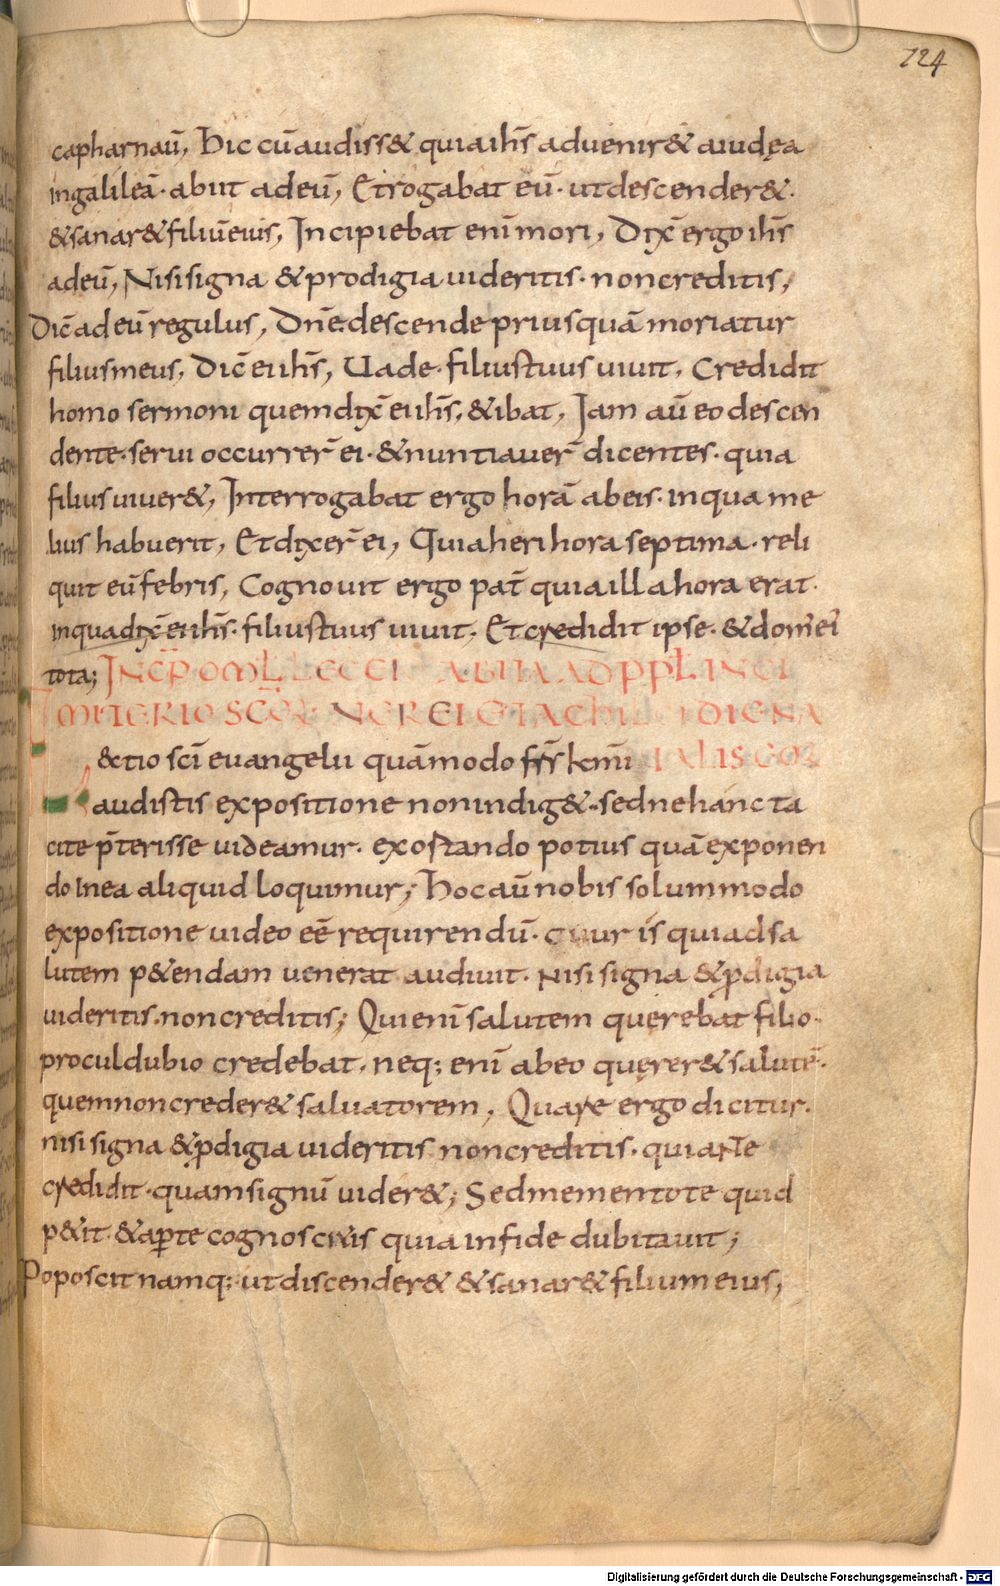 124
capharnaū, Hic cū audiss& quia ih̄s advenir& a iudęa
in galileā · abiit ad eū, Et rogabat eū · ut descender& ·
& sanar& filiū eius, Incipiebat eni mori, Dix̄ ergo ih̄s
ad eū, Nisi signa & prodigia videritis · non creditis,
Dic̄ ad eū regulus, Dn̄e descende priusquā moriatur
filius meus, Dic̄ ei ih̄s, Uade · filius tuus uiuit, Credidit
homo sermoni quem dix̄ ei ih̄s, & ibat, Iam aū eo descen
dente · serui occurrer̄ ei · & nuntiauer̄ dicentes · quia
filius uiuer&, Interrogabat ergo horā ab eis · in qua me
lius habuerit, Et dixer̄ ei, Quia heri hora septima · reli
quit eū febris, Cognouit ergo pat̄ quia illa hora erat ·
in qua dix̄ ei ih̄s · filius tuus uiuit, Et credidit ipse · & dom̄ ei
tota; INCP̄ OML̄
&tio sc̄i euangelii quā modo fr̄s km̄i
audistis expositione non indig& · sed ne hanc ta
cite p̄terisse uideamur · exostando potius quā exponen
do in ea aliquid loquimur; Hoc aū nobis solummodo
expositione uideo eē requirendū · cur is qui ad sa
lutem p&endam uenerat audiuit · Nisi signa & p̄digia
uideritis · non creditis; Qui enī salutem quęrebat filio ·
procul dubio credebat · neq; enī ab eo quęrer& salutē ·
quem non creder& saluatorem, Quare ergo dicitur ·
nisi signa & p̄digia uideritis non creditis · qui ante
credidit · quam signū uider&; Sed mementote quid
p&iit · & aperte cognoscitis quia in fide dubitauit;
Poposcit namq; · ut discender& & sanar& filium eius,
Digitalisierung gefördert durch die Deutsche Forschungsgemeinschaft - DFG